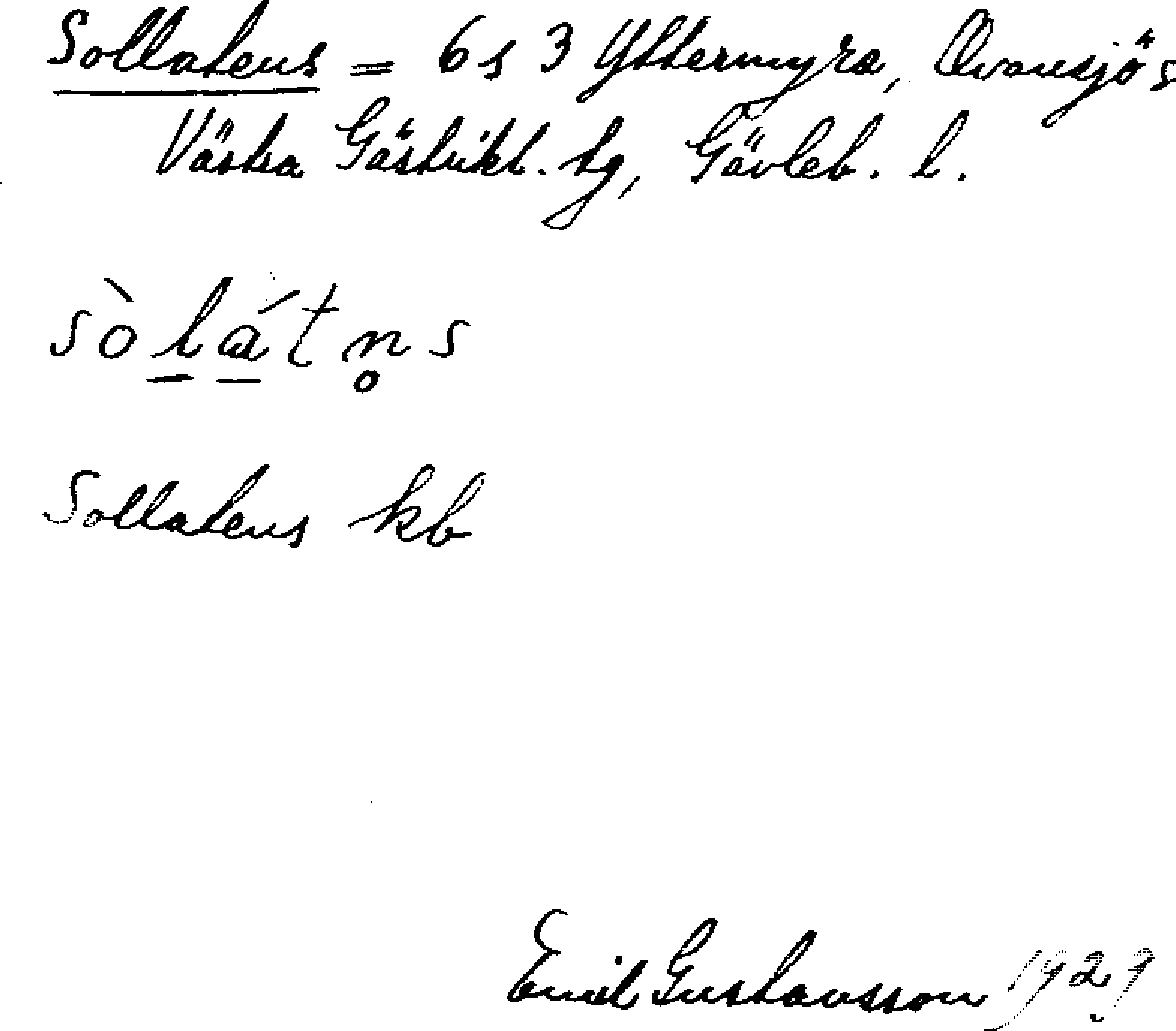 Sollatens = 6s 3 Yttermyra, Ovansjö s
Västra Gästrikl. tg, Gävleb. l.
sòlátn̥s
Sollatens kb
Emil Gustavsson 1929